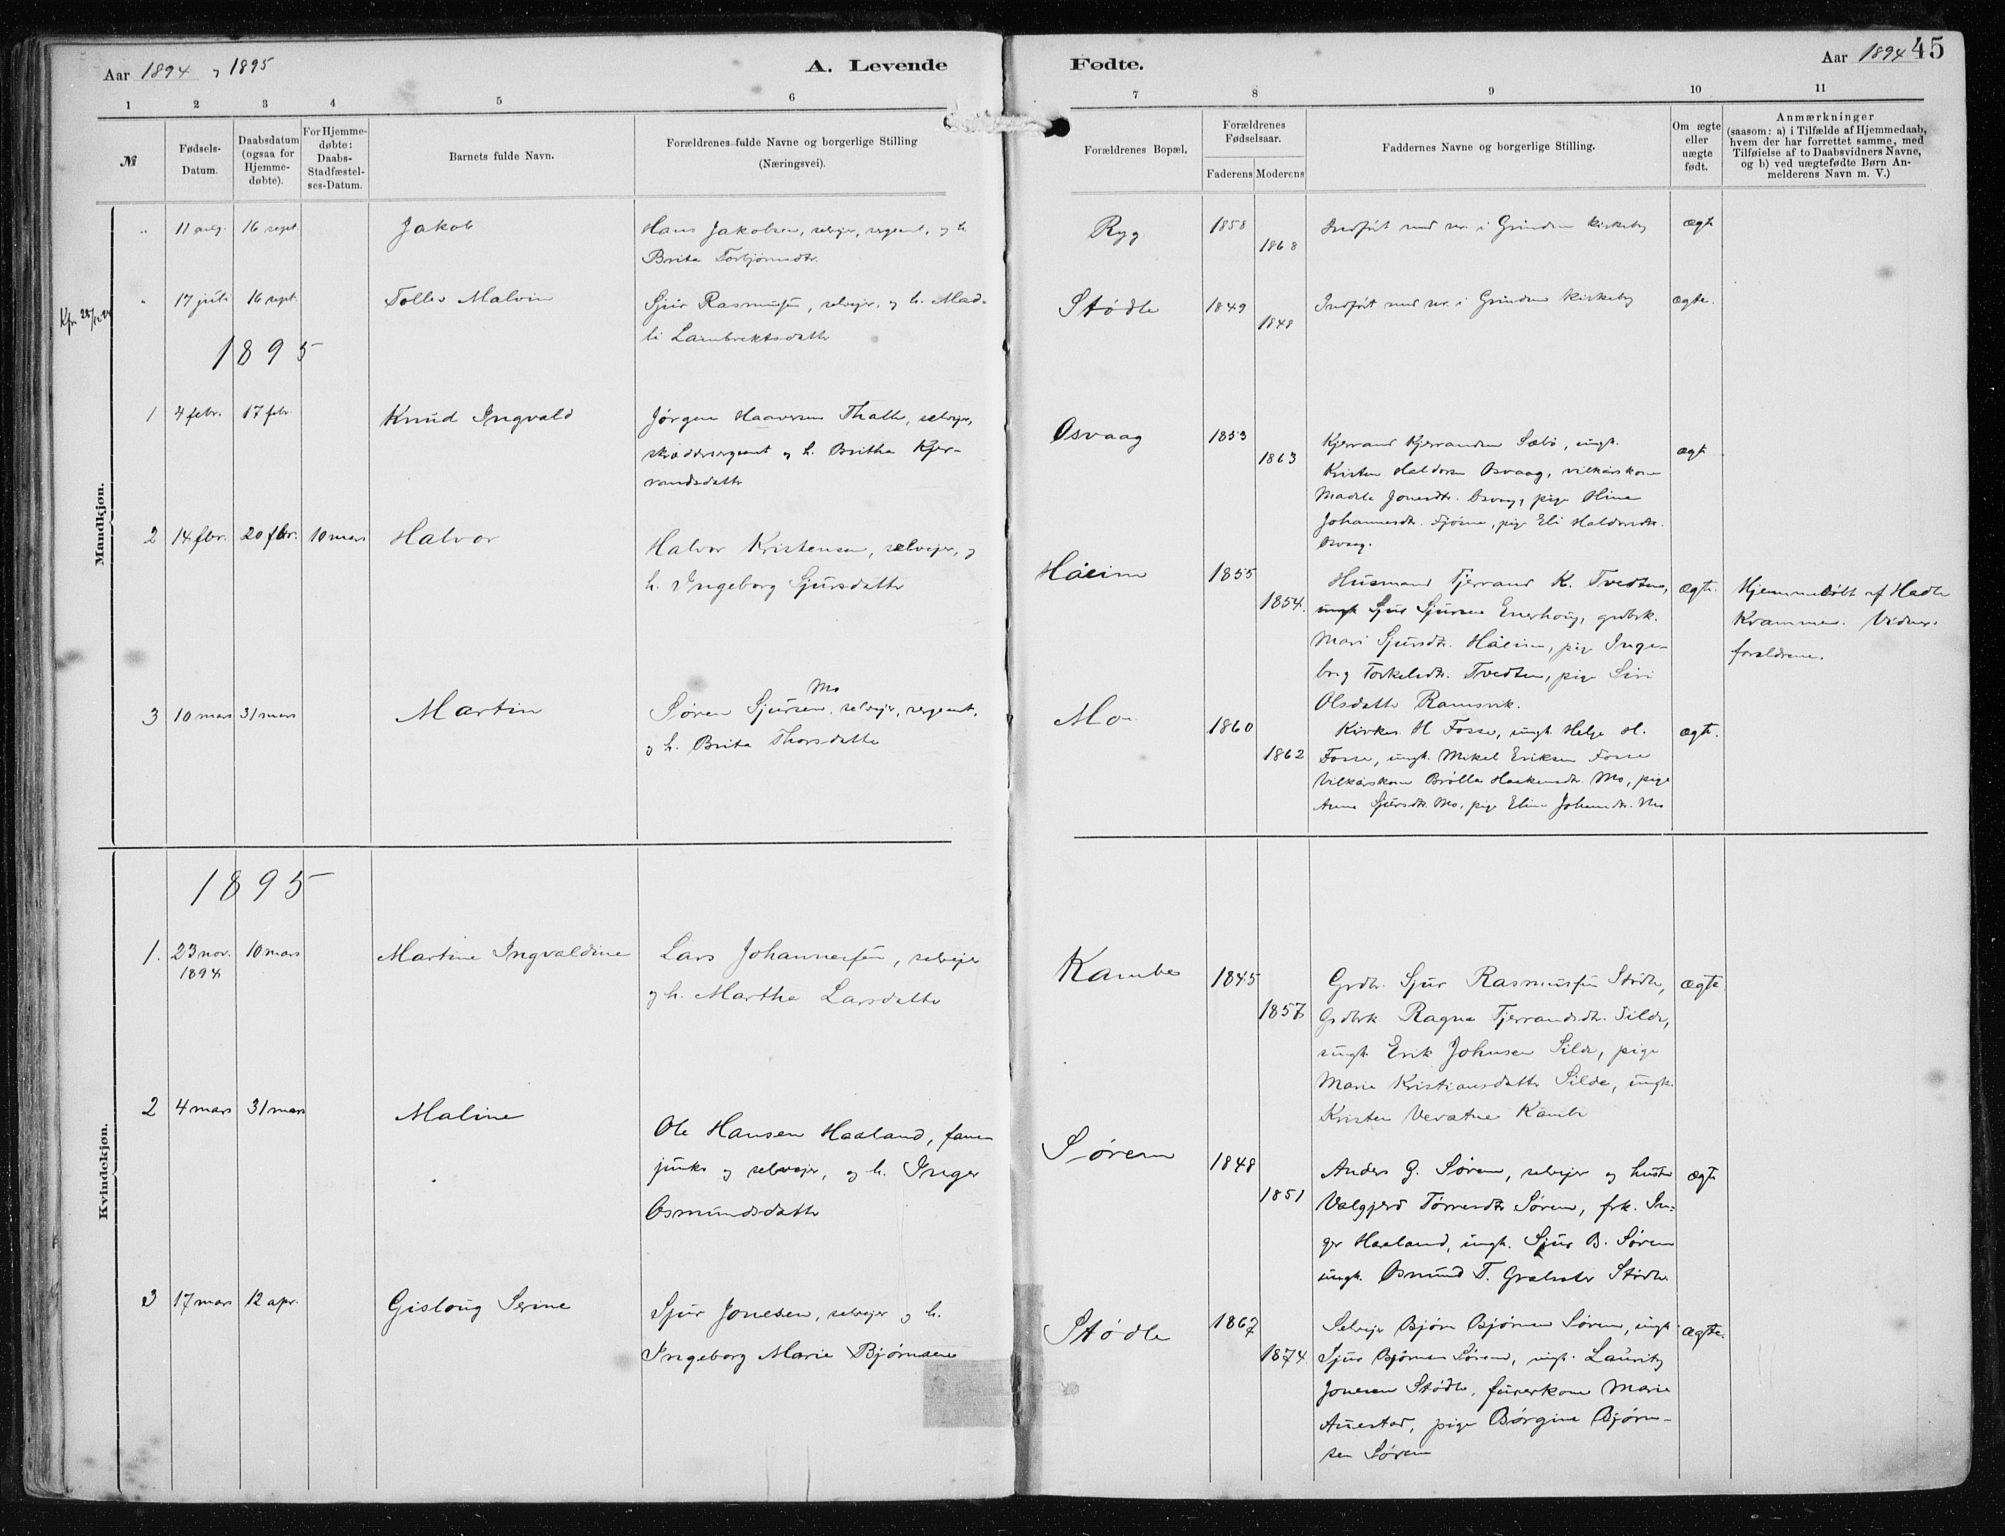 Aar 1894 , 1895
A. Levende
Fødte.
Aar 1894
45
1 2 3 4 5 6
7 8 9 10 11
№
Fødsels-
Datum.
Daabsdatum
(ogsaa for
Hjemme-
døbte).
For Hjemme-
døbte:
Daabs-
Stadfæstel-
ses-Datum.
Barnets fulde Navn.
Forældrenes fulde Navne og borgerlige Stilling
(Næringsvei).
Forældrenes Bopæl,
Forældrenes
Fødselsaar.
Faderens Moderens
Faddernes Navne og borgerlige Stilling.
Om ægte
eller
uægte
født.
Anmærkninger
(saasom: a) i Tilfælde af Hjemmedaab,
hvem der har forrettet samme, med
Tilføielse af to Daabsvidners Navne,
og b) ved uægtefødte Børn An-
melderens Navn m. V.)
Mandkjøn.
" 11 aug. 16 sept. Jakob
Hans Jakobsen, selvejer, sergeant, og h.
Brita Torbjørnsdtr.
Ryg 1858 1868
Indført med nr. i Grinden kirkebog
ægte
" 17 juli 16 sept. Tollev Malvin
Sjur Rasmussen, selvejer, og h. Mad-
li Lambrektsdatter
Stødle 1849 1848
Indført med nr. i Grinden kirkebog
ægte.
1895
1 4 febr. 17 febr Knud Ingvald
Jørgen Haaversen Thatle, selvejer,
skræddersergeant og h. Britha Kjer-
randsdatter
Osvaag 1853 1863
Kjerrand Kjerrandsen Sæbø, ungk.
Kristen Haldorsen Osvaag, vilkårskone
Madele Jonesdtr. Osvaag, pige Stine
Johannesdtr. Fjøsne, pige Eli Haldorsdtr.
Osvaag.
ægte
2 14 febr. 20 febr. 10 mars Halvor
Halvor Kristensen, selvejer, og
h. Ingeborg Sjursdatter
Håeim 1855 1854.
Husmand Tjerrand K. Tvedten,
ungk. Sjur Sjursen Enerhoug, grdbrk.
Mari Sjursdtr. Håeim, pige Inge-
borg Torkelsdtr. Tvedten, pige Siri
Olsdatter Ramsvik.
ægte.
Hjemmedøbt af Hadle
Krammer. Vidner:
forældrene.
3 10 mars 31 mars Martin
Søren Sjursen Mo, selvejer, sergeant,
og h. Brita Thorsdatter
Mo 1860 1862
Kirkes. H. Fosse, ungk. Helge H.
Fosse, ungk. Mikel Eriksen Fosse
Vilkårskone Brølla Haakensdtr. Mo, pige
Anna Sjursdtr. Mo, pige Eline Johansdtr. Mo
ægte.
Kvindekjøn.
1895
1. 23 nov. 1894 10 mars Martine Ingvaldine
Lars Johannessen, selvejer
og h. Martha Larsdatter
Kambe 1845 1857
Grdbr. Sjur Rasmussen Stødle,
Grdbrk. Ragna Tjerrandsdtr. Silde,
ungk. Erik Johnsen Silde, pige
Marie Kristiansdatter Silde, ungk.
Kristen Vevatne Kambe
ægte.
2 4 mars 31 mars Maline
Ole Hansen Haaland, fane-
junker og selvejer, og h. Inger
Osmundsdatter
Sørem 1848 1851
Anders G. Sørem, selvejer og hustru
Valgjerd Tørresdtr Sørem, frk. In-
ger Haaland, ungk. Sjur B. Sørem
ungk. Osmund T. Stødle
ægte
3 17 mars 12 apr. Gislaug Serine
Sjur Jonesen, selvejer og h.
Ingeborg Marie Bjørnsen
Stødle 1867 1874
Selvejer Bjørn Bjørnsen Sørem, ungk
Sjur Bjørnsen Sørem, ungk. Lauritz
Jonesen Stødle, furerkone Marie
Auestad, pige Børgine Bjørn-
sen Sørem
ægte.